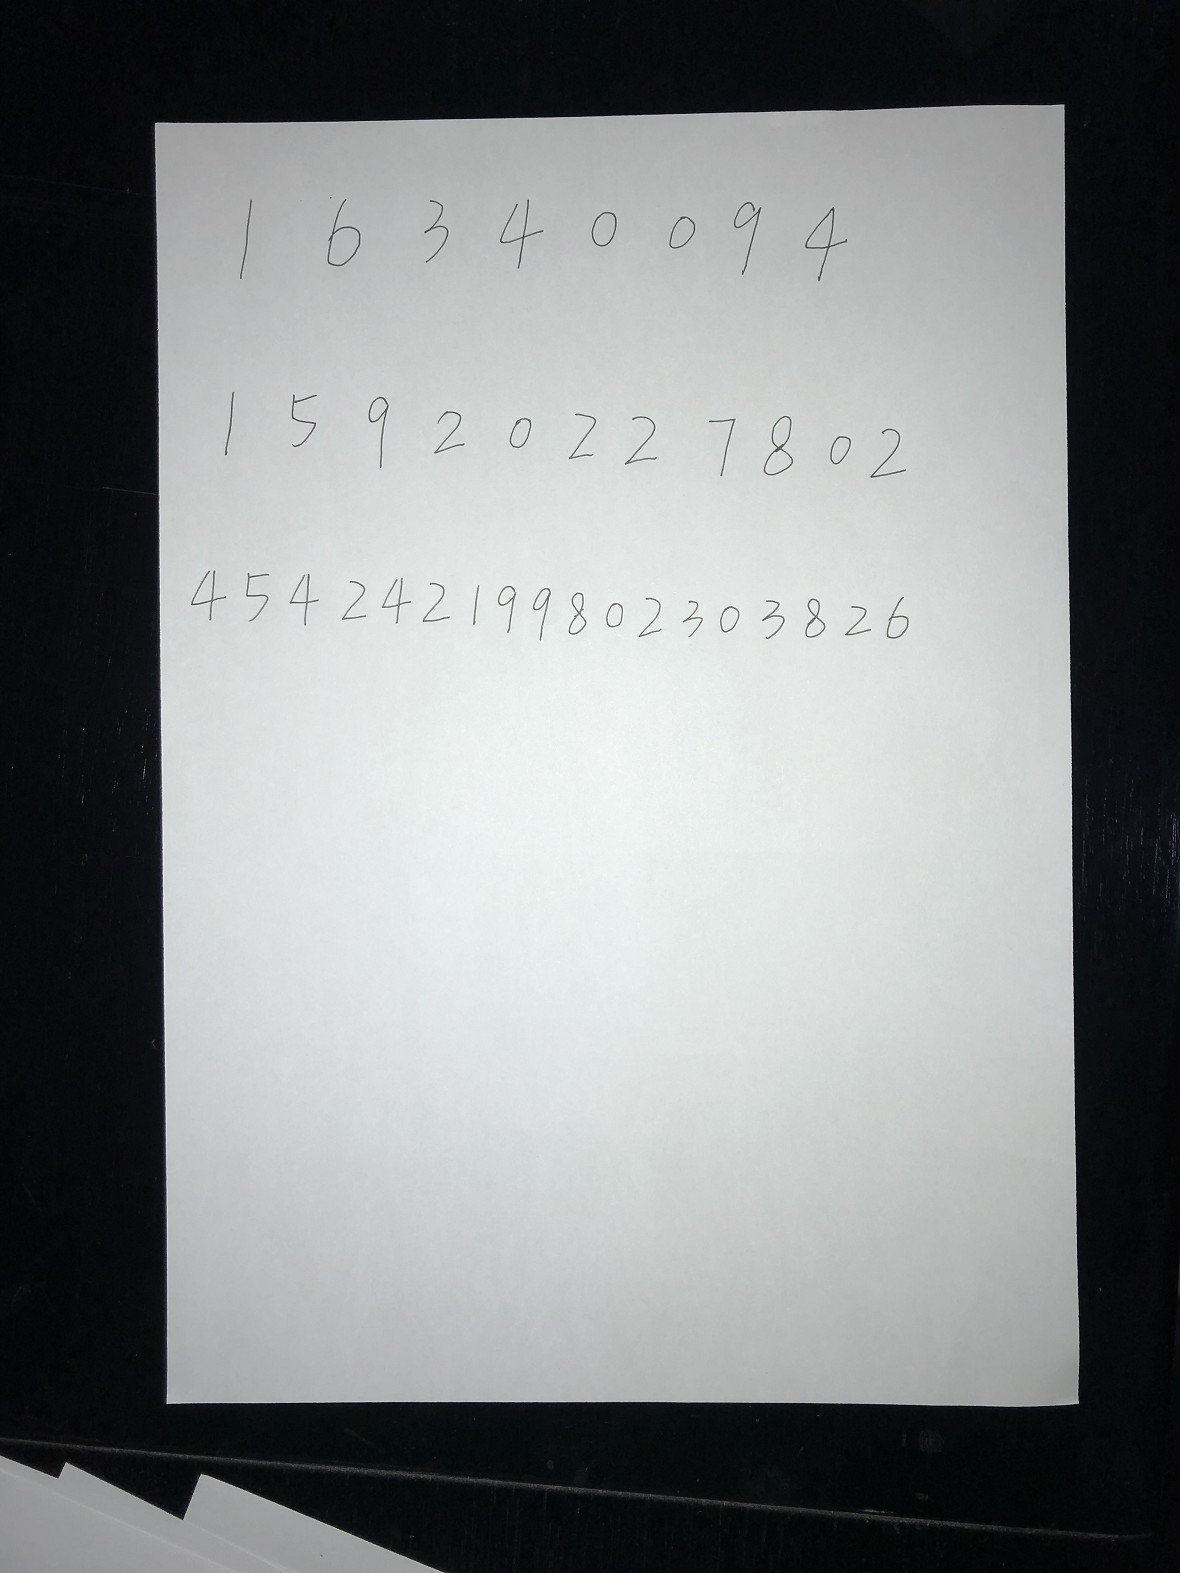 1 6 3 4 0 0 9 4
1 5 9 2 0 2 2 7 8 0 2
454242199802303826